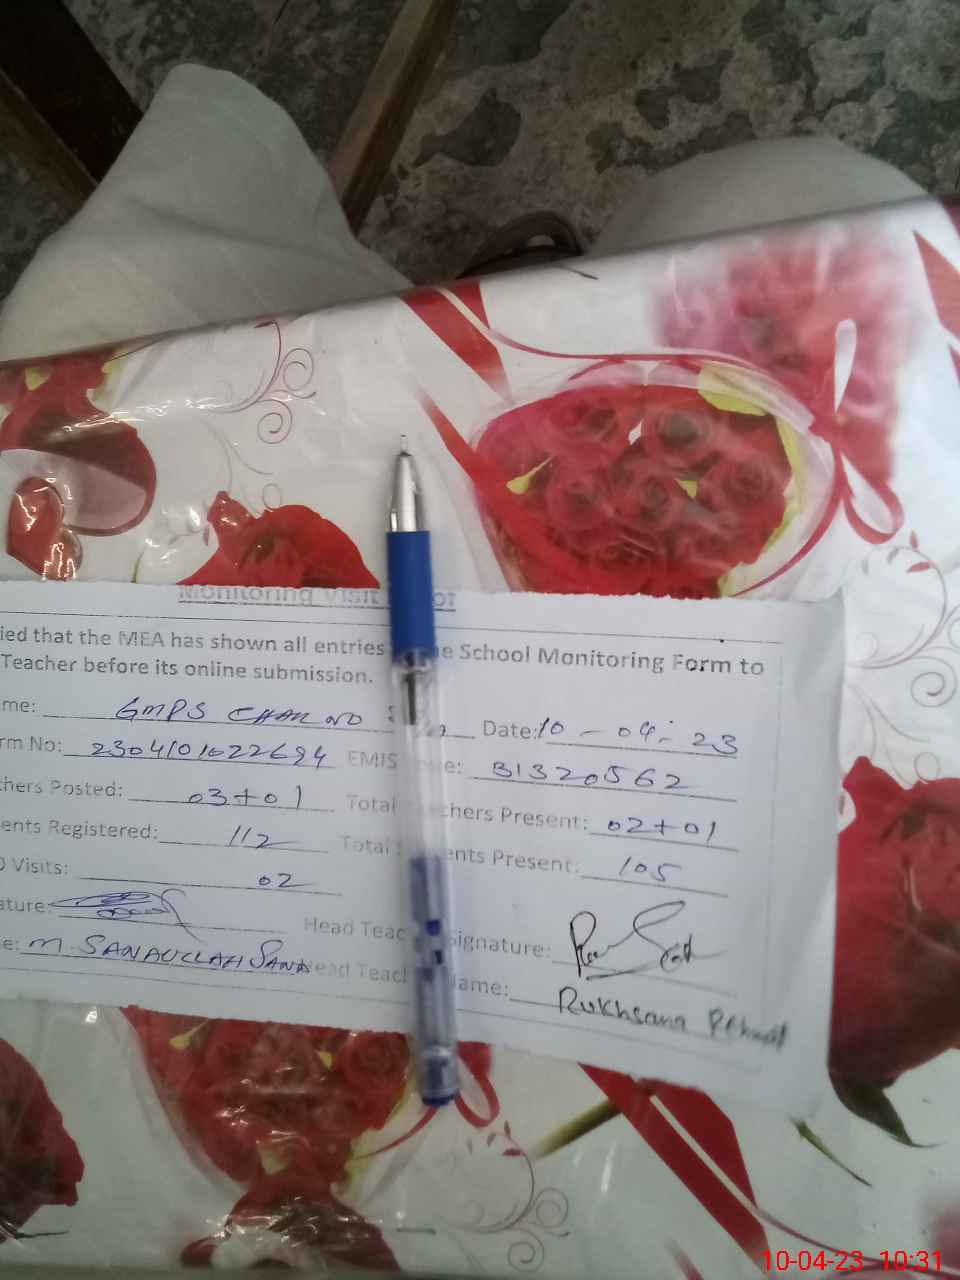 Monitoring Visit
ied that the MEA has shown all entries e School Monitoring Form to
Teacher before its online submission.
me: GMPS CHAK NO Date: 10-04-23
rm No: EMIS e: 31320562
hers Posted: 03+01 Total chers Present: 02+01
ents Registered: 112 Total ents Present: 105
Visits: 02
ature: Head Teac Signature:
e: M. SANAULLAH SANA Head Teach ame: Rukhsana Rehmat
10-04-23 10:31